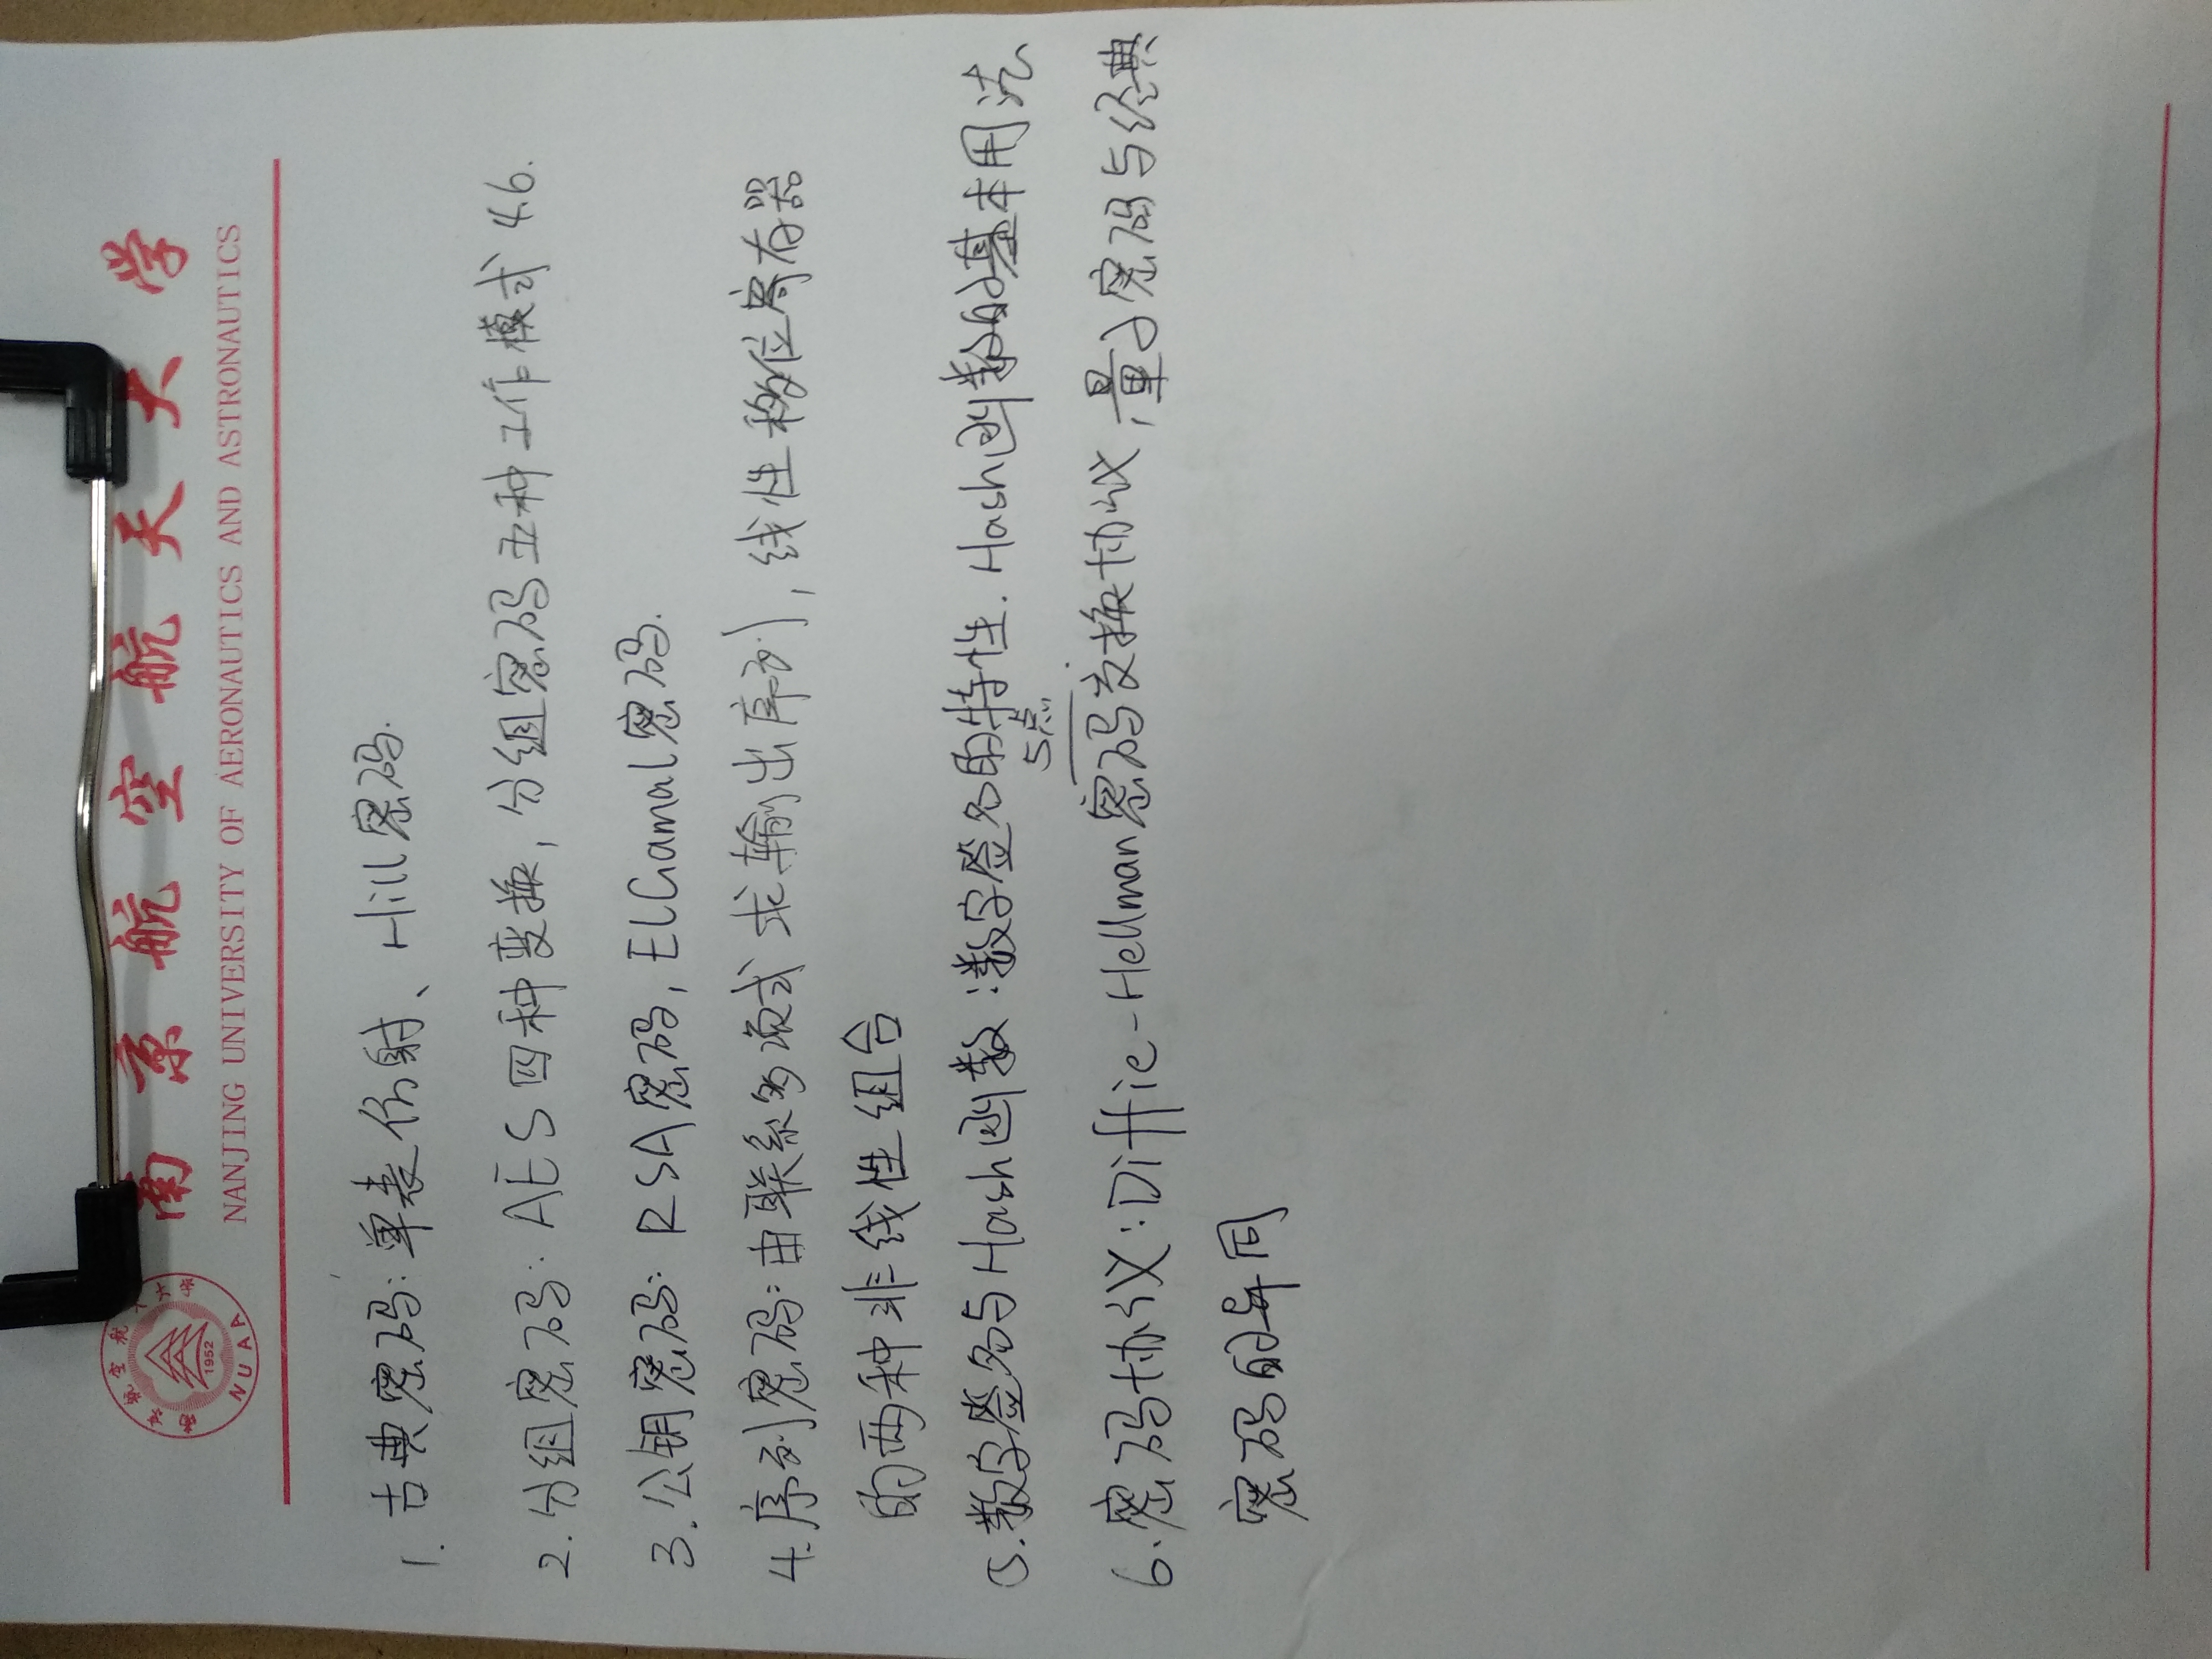 南京航空航天大学
1952
NUAA
南京航空航天大学
NANJING UNIVERSITY OF AERONAUTICS AND ASTRONAUTICS
1. 古典密码:单表仿射、Hill密码.
2. 分组密码: AES四种变换, 分组密码五种工作模式 4.6.
3. 公钥密码: RSA密码, ElGamal密码.
4. 序列密码:由联系多项式求输出序列, 线性移位寄存器
的两种非线性组合
5. 数字签名与Hash函数:数字签名的特性. Hash函数的基本用法
5点
6. 密码协议:Diffie-Hellman密码交换协议,量子密码与经典
密码的异同